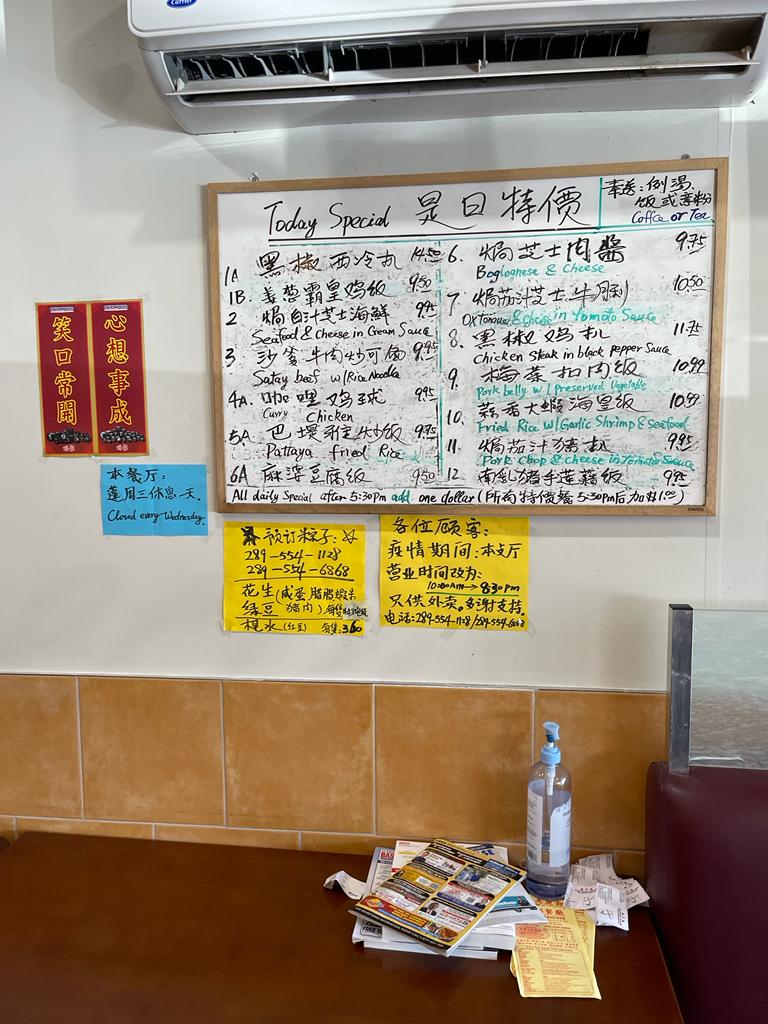 Carrier
Today Special 是日特價
奉送:例湯
饭或意粉
Coffee or Tea
1A 黑椒西冷扒 14.50
1B. 姜葱霸皇鸡饭 9.50
2 焗白汁芝士海鲜 9.95
Seafood & Cheese in Cream Sauce
3 沙爹牛肉炒河 9.95
Satay beef w/ Rice Noodle
4A 咖喱鸡球 9.95
Curry Chicken
5A 巴堤雅炒饭 9.95
Pattaya fried Rice
6A 麻婆豆腐饭 9.50
6. 焗芝士肉醬 9.75
Bogloghese & Cheese
7 焗茄汁芝士牛脷 10.50
Ox Tongue & Cheese in Tomato Sauce
8. 黑椒鸡扒 11.75
Chicken Steak in black pepper Sauce
9. 梅菜扣肉饭 10.99
Pork belly w/ Preserved Vegetable
10. 蒜香大蝦海皇饭 10.99
Fried Rice w/ Garlic Shrimp & Seafood
11. 焗茄汁猪扒 9.95
Pork Chop & Cheese in Tomato Sauce
12. 南乳猪手莲藕饭 9.95
All daily Special after 5:30pm add one dollar (所有特價餐 5:30pm后加$1.00)
STAPLES
心想事成
笑口常開
本餐厅:
逢周三休息一天.
Closed every Wednesday.
预订粽子:
289-554-1128
289-554-6868
花生(咸蛋腊肠蝦米
绿豆 猪肉)每隻
枧水(红豆) 每隻:3.60
各位顾客:
疫情期间:本支厅
营业时间改为:
10:30AM→8:30pm
只供外卖。多谢支持.
电话:289-554-1128/289-554-6868